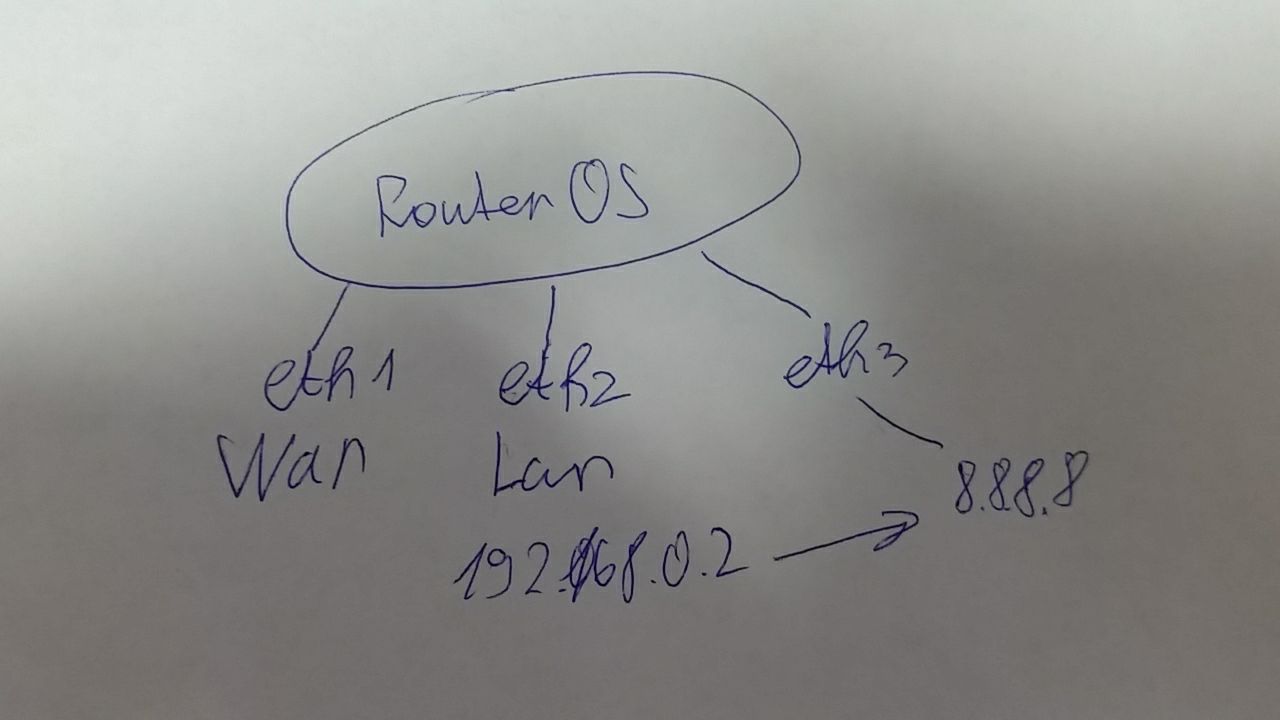 Router OS
eth1
eth2
eth3
Wan
Lan
8.8.8.8
192.168.0.2